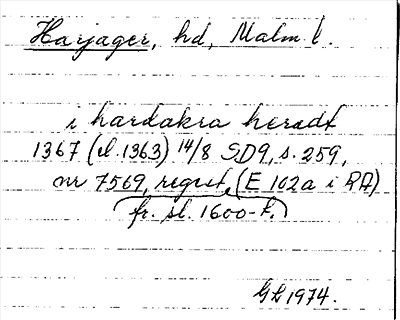 Harjager, hd, Malm l.
i hardakra heradt
1367 (el. 1363) 14/8 SD9, s. 259,
nr 7569, regest, (E 102a i RA)
fr. sl. 1600-t.
GL 1974.